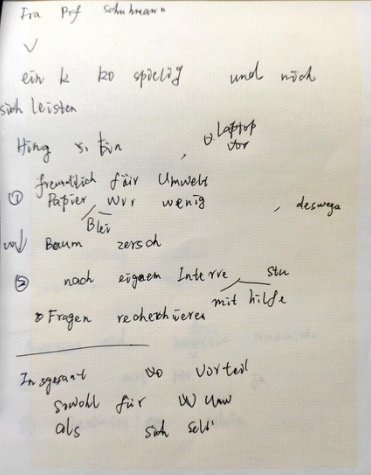 Fra Prf Schuhmann
ein k ko spielig und nich
sich leisten
Hing s. bin , v. Laptop vor
freundlich für Umwelt
① Papier wir wenig , deswega
Blei
Baum zersch
② nach eignem Interre stu
mit hilfe
Fragen recherchieren
Insgesamt Vorteil
sowohl für Umw
als sich selb